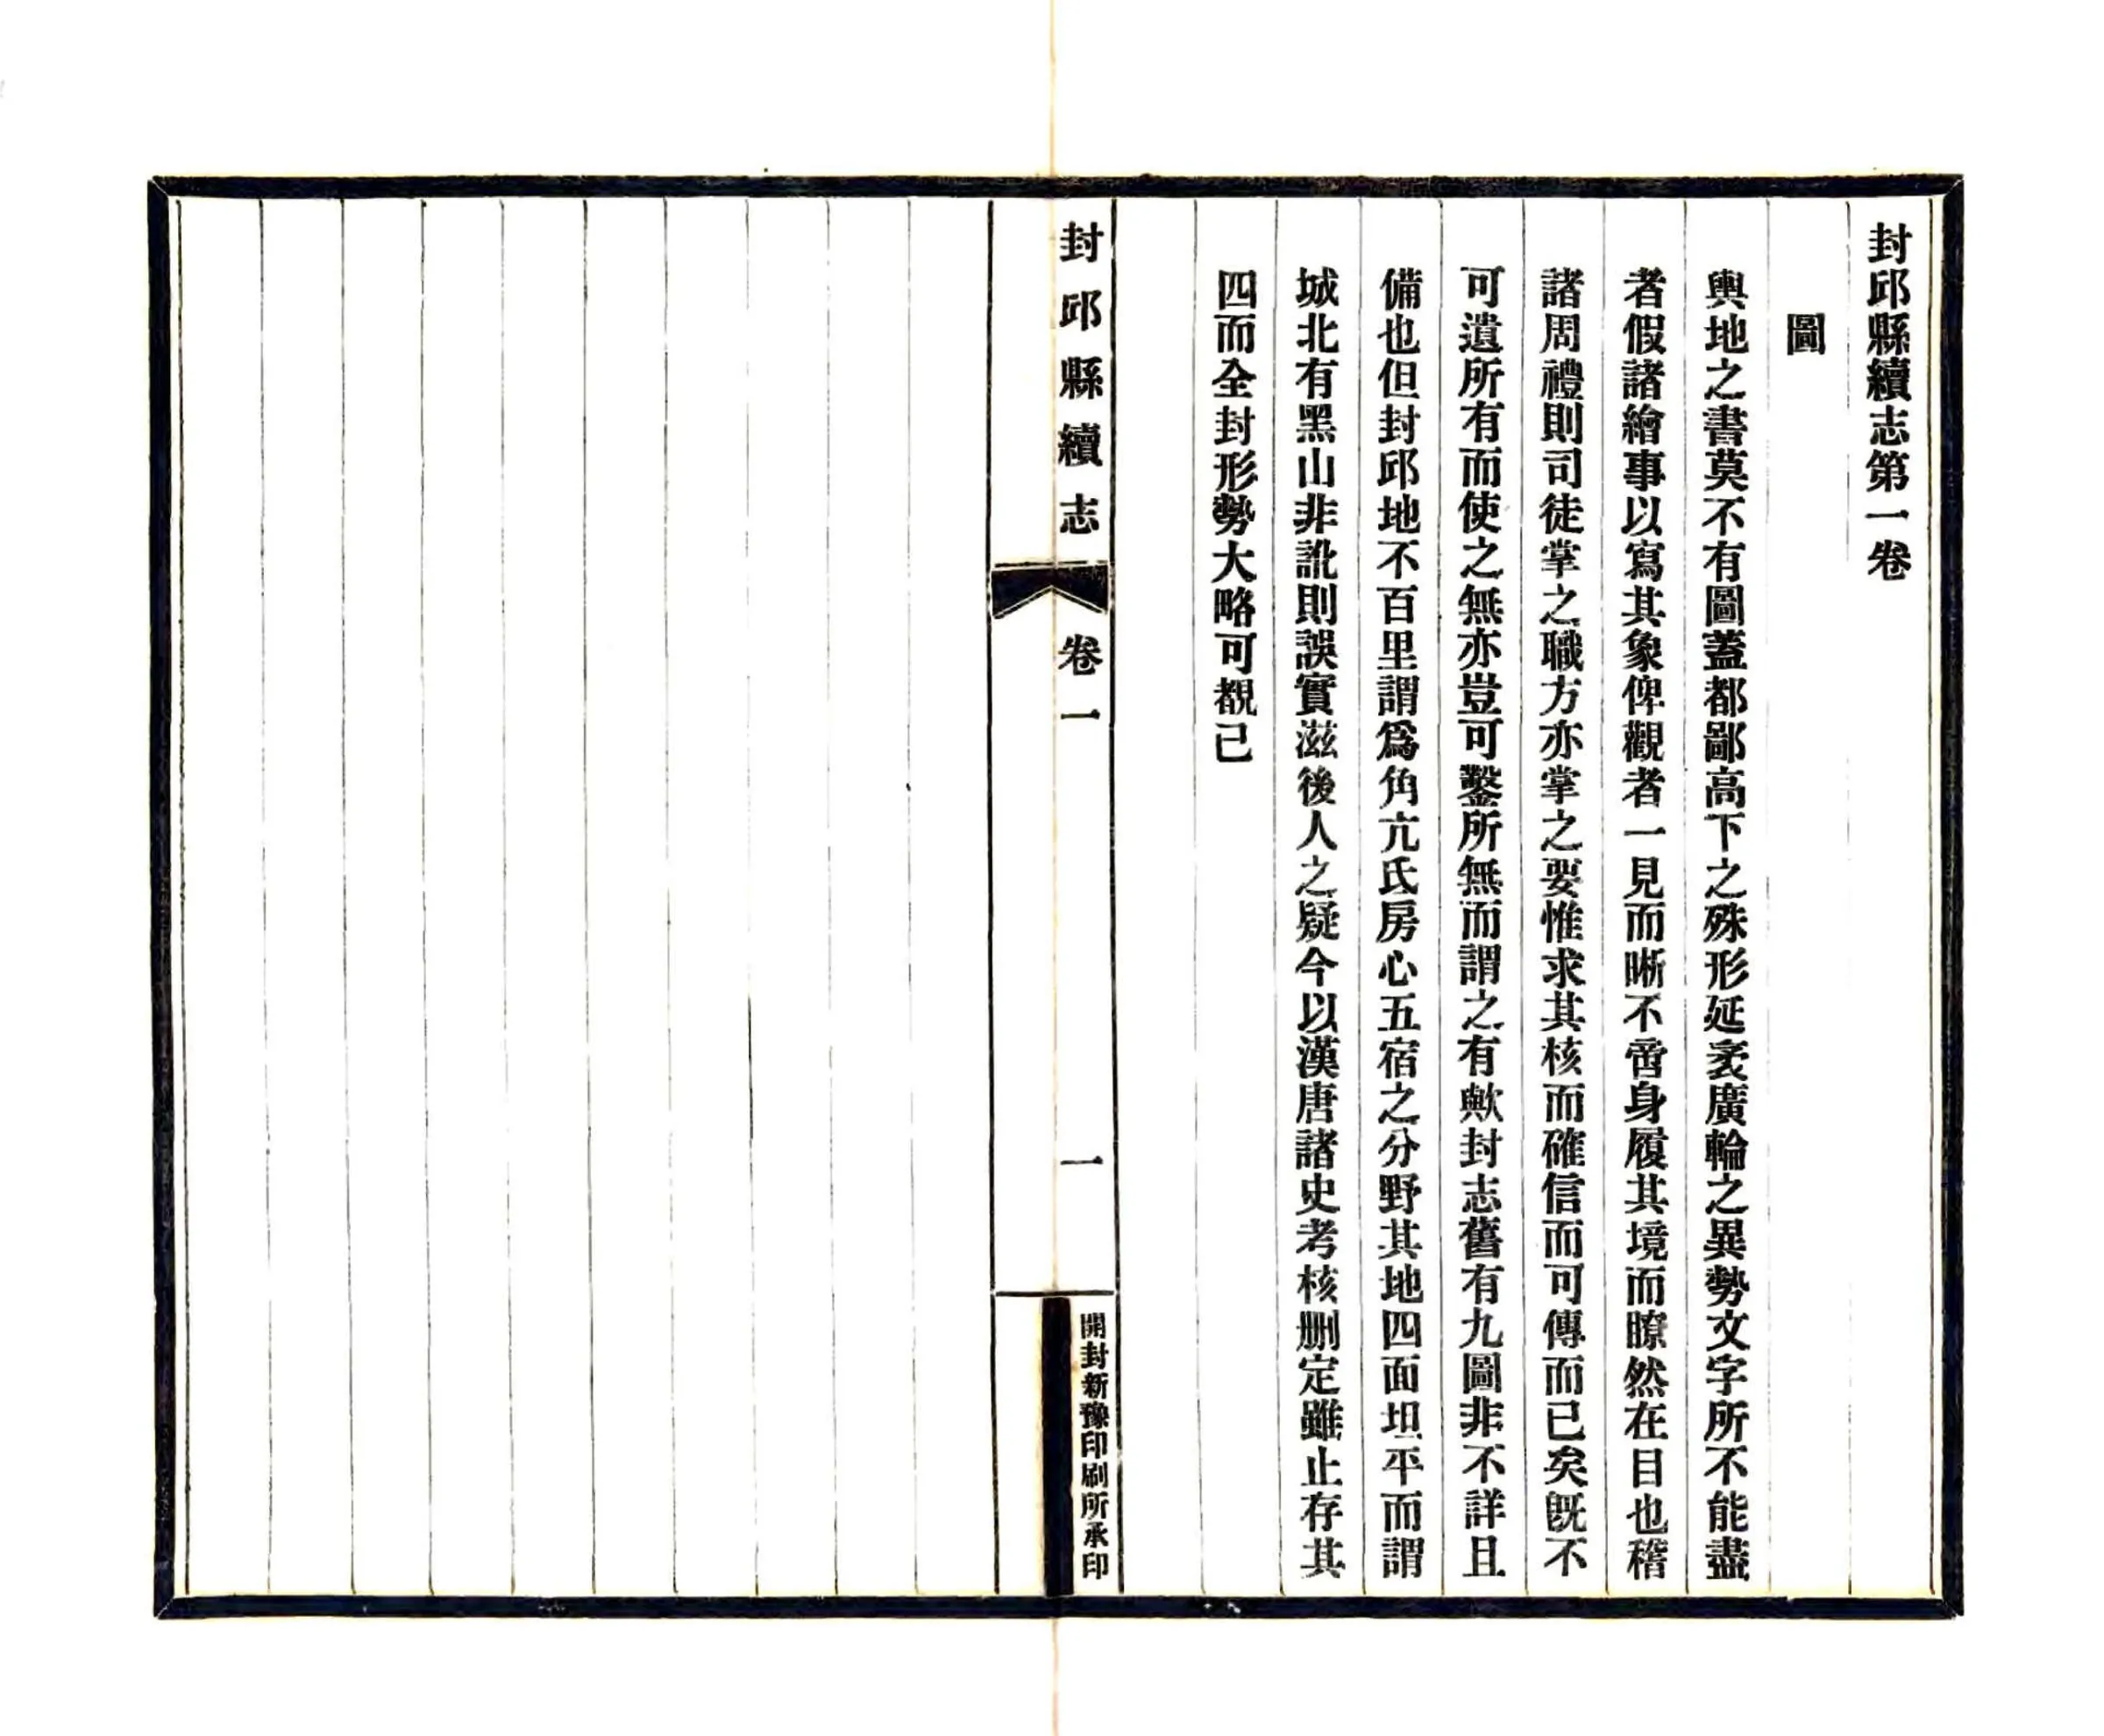 封邱縣續志第一卷
圖
輿地之書莫不有圖蓋都鄙高下之殊形延袤廣輪之異勢文字所不能盡
者假諸繪事以寫其象俾觀者一見而晰不啻身履其境而瞭然在目也稽
諸周禮則司徒掌之職方亦掌之要惟求其核而確信而可傳而已矣既不
可遺所有而使之無亦豈可鑿所無而謂之有歟封志舊有九圖非不詳且
備也但封邱地不百里謂爲角亢氐房心五宿之分野其地四面坦平而謂
城北有黑山非訛則誤實滋後人之疑今以漢唐諸史考核删定雖止存其
四而全封形勢大略可覩已
封邱縣續志
卷一
一
開封新豫印刷所承印